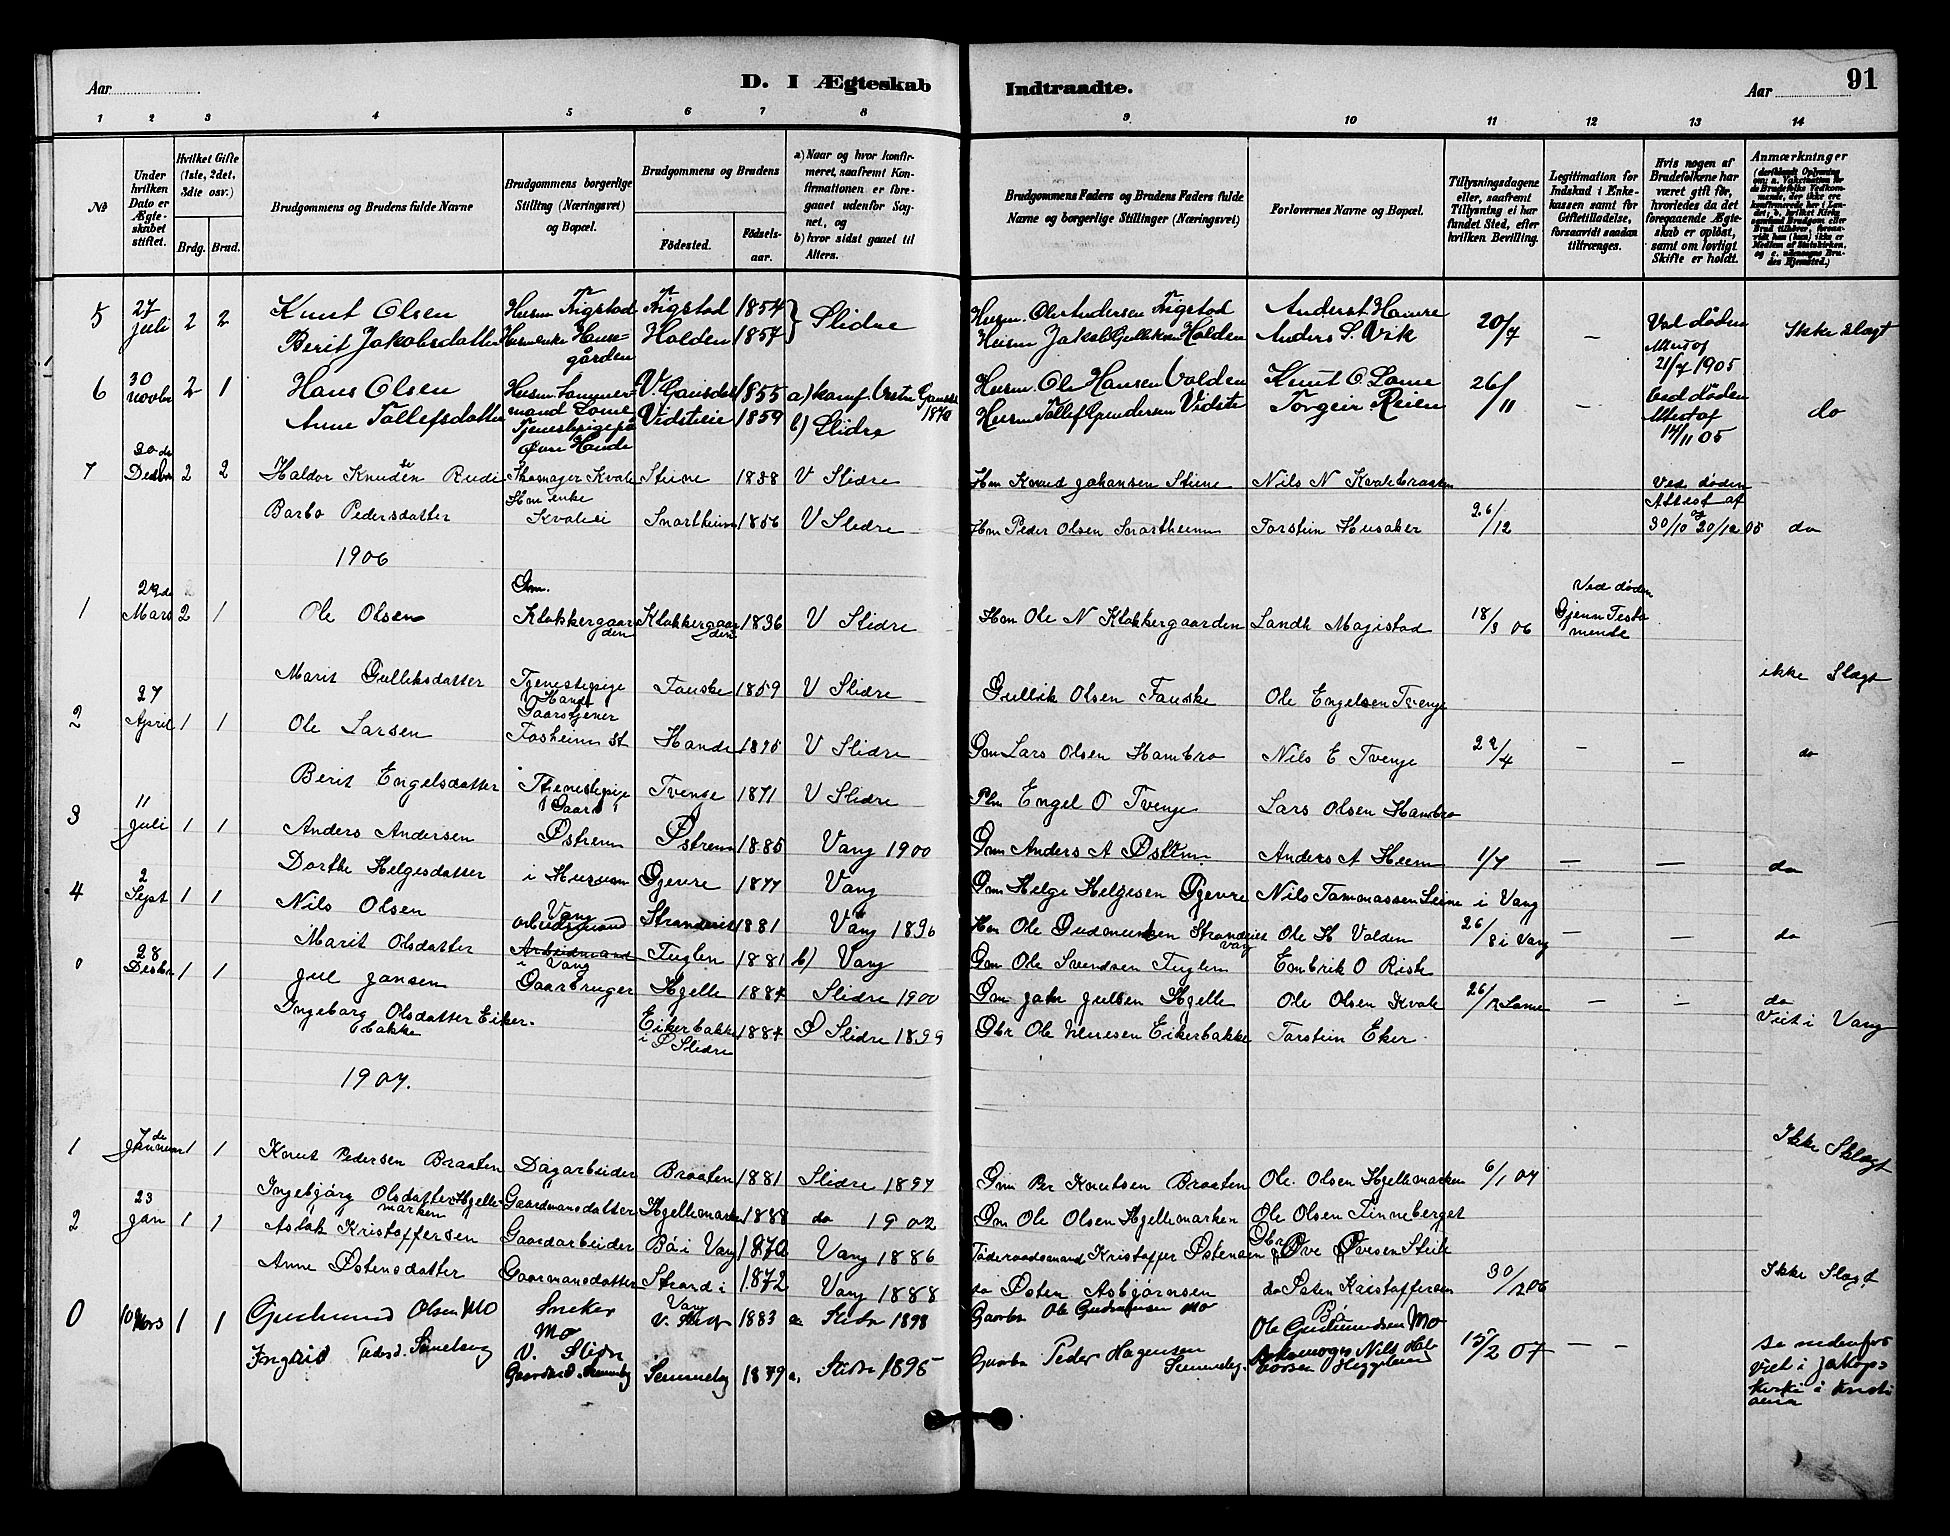 Aar
D. I Ægteskab
Indtraadte.
Aar
91
1 2 3 4 5 6 7 8 9 10 11 12 13 14
№
Under hvilken Dato er Ægteskabet stiftet.
Hvilket Gifte (1ste, 2det, 3die osv.)
Brdg. Brud.
Brudgommens og Brudens fulde Navne
Brudgommens borgerlige Stilling (Næringsvei) og Bopæl.
Brudgommens og Brudens
Fødested.
Fødselsaar.
a) Naar og hvor konfirmeret, saafremt Konfirmationen er foregaaet udenfor Sognet, og
b) hvor sidst gaaet til Alters.
Brudgommens Faders og Brudens Faders fulde Navne og borgerlige Stillinger (Næringsvei)
Forlovernes Navne og Bopæl.
Tillysningsdagene eller, saafremt Tillysning ei har fundet Sted, efter hvilken Bevilling.
Legitimation for Indskud i Enkekassen samt for Giftetilladelse, forsaavidt saadan tiltrænges.
Hvis nogen af Brudefolkene har været gift før, hvorledes da det foregaaende Ægteskab er opløst, samt om lovligt Skifte er holdt.
Anmærkninger
5 27 Juli 2 2 Knut Olsen Husm Figstad Figstad 1854 Slidre Husm. Ole Andersen Figstad Anderst Hamre 20/7 – Ved døden Attest af 21/7 1905 Ikke slægt
Berit Jakobsdatter Husmenke Haugården Holden 1857 Husm Jakob Gulliksen Holden Anders S. Vik
6 30 Novbr 2 1 Hans Olsen Husm. Tømmermand Lome V. Gausdal 1855 a) konf. Vestre Gausdal 1870 Husm. Ole Hansen Volden Knut O Lome 26/11 – Ved døden Attest af 14/11 05 do
Anne Tollefsdatter Tjenestepige på øvre Hande Vidsteie 1859 b) Slidre Husm Tollef Gundersen Vidste Torgeir Reien
7 30 de Decbr 2 2 Haldor Knudsen Rudi Skomager Kvale Steine 1838 V Slidre Hm Knud Johansen Steine Nils N Kvalebraaten Ved døden Attest af 30/10 og 20/12 05
Barbo Pedersdatter Hm enke Kvaleei Snartheim 1856 V Slidre Hm Peder Olsen Snartheim Torstein Husaker 26/12 do
1906
1 29de Mars 2 1 Ole Olsen Gm. Klokkergaarden Klokkergaarden 1836 V Slidre Hm Ole N Klokkergaarden Landh Magistad 18/3 06 Ved døden Gjenn Testamende
Marit Gulliksdatter Tjenestepige Hande Fauske 1859 V Slidre Gullik Olsen Fauske Ole Engelsen Tvenge ikke Slægt
2 27 April 1 1 Ole Larsen Gaarstjener Fosheim st Hande 1875 V Slidre Gm Lars Olsen Hambro Nils E Tvenge 22/4 – – do
Berit Engelsdatter Tjenestepige Tvenge 1871 V Slidre Plm Engel O Tvenge Lars Olsen Hambro
3 11 Juli 1 1 Anders Andersen Østrem Østrem 1885 Vang 1900 Gm Anders A Østrem Anders A Heen 1/7 – – do
Dorthe Helgesdatter i Hurum Gjevre 1877 Vang Gm Helge Helgesen Gjevre Nils Tommassen Leine i Vang
4 2 Sept 1 1 Nils Olsen Vang arbeidsmand Strandeiet 1881 Vang 1896 Hm Ole Gudmunsen Strandeiet Vang Ole H Volden 26/8 i Vang – – do
Marit Olsdatter i Vang Tuglen 1881 b) Vang Gm Ole Svendsen Tuglen Embrik O Riste
28 Decbr 1 1 Jul Jansen Gaarbruger Hjelle 1884 Slidre 1900 Gm Jahn Julsen Hjelle Ole Olsen Kvale 26/12 Lome – – do
Ingeborg Olsdatter Eikerbakke Eikerbakke i Ø Slidre 1884 Ø Slidre 1899 Gbr Ole Eikerbakke Torstein Eker. Viet i Vang
1907.
1 7de Januar 1 1 Knut Pedersen Braaten Dagarbeider Braaten 1881 Slidre 1897 Gm Per Knutsen Braaten Ole Olsen Hjellemarken 6/1 07 Ikke Slægt
Ingebjørg Olsdatter Hjellemarken Gaardmansdatter Hjellemarken 1888 do 1902 Gm Ole Olsen Hjellemarken Ole Olsen Tinneberget
2 23 Jan 1 1 Aslak Kristoffersen Gaardarbeider Bø i Vang 1870 Vang 1886 Føderaadsmand Kristoffer Østensen Gbr Ove Øvesen Strile
Anne Østensdatter Gaarmansdatter Strand i Vang 1872 Vang 1888 do Østen Asbjørnsen do Østen Kristoffersen Bø 30/12 06 Ikke Slægt
0 10 Mars 1 1 Gudmund Olsen Mo Sneker Mo V. Slidr V. Slidr 1883 a. Slidr 1898 Gaarbr Ole Gudmunsen Mo Ole Gudmundsen Mo 15/2 07 – – se nedenfor Viet i Jakobskirke i Kristiania
Ingrid Pedersd. Semeleng Gaardmd. Semeleng 1879 a, Slidr 1895 Gaarbr Peder Hagensen Semeleng. Nils Halvorsen Heggelund